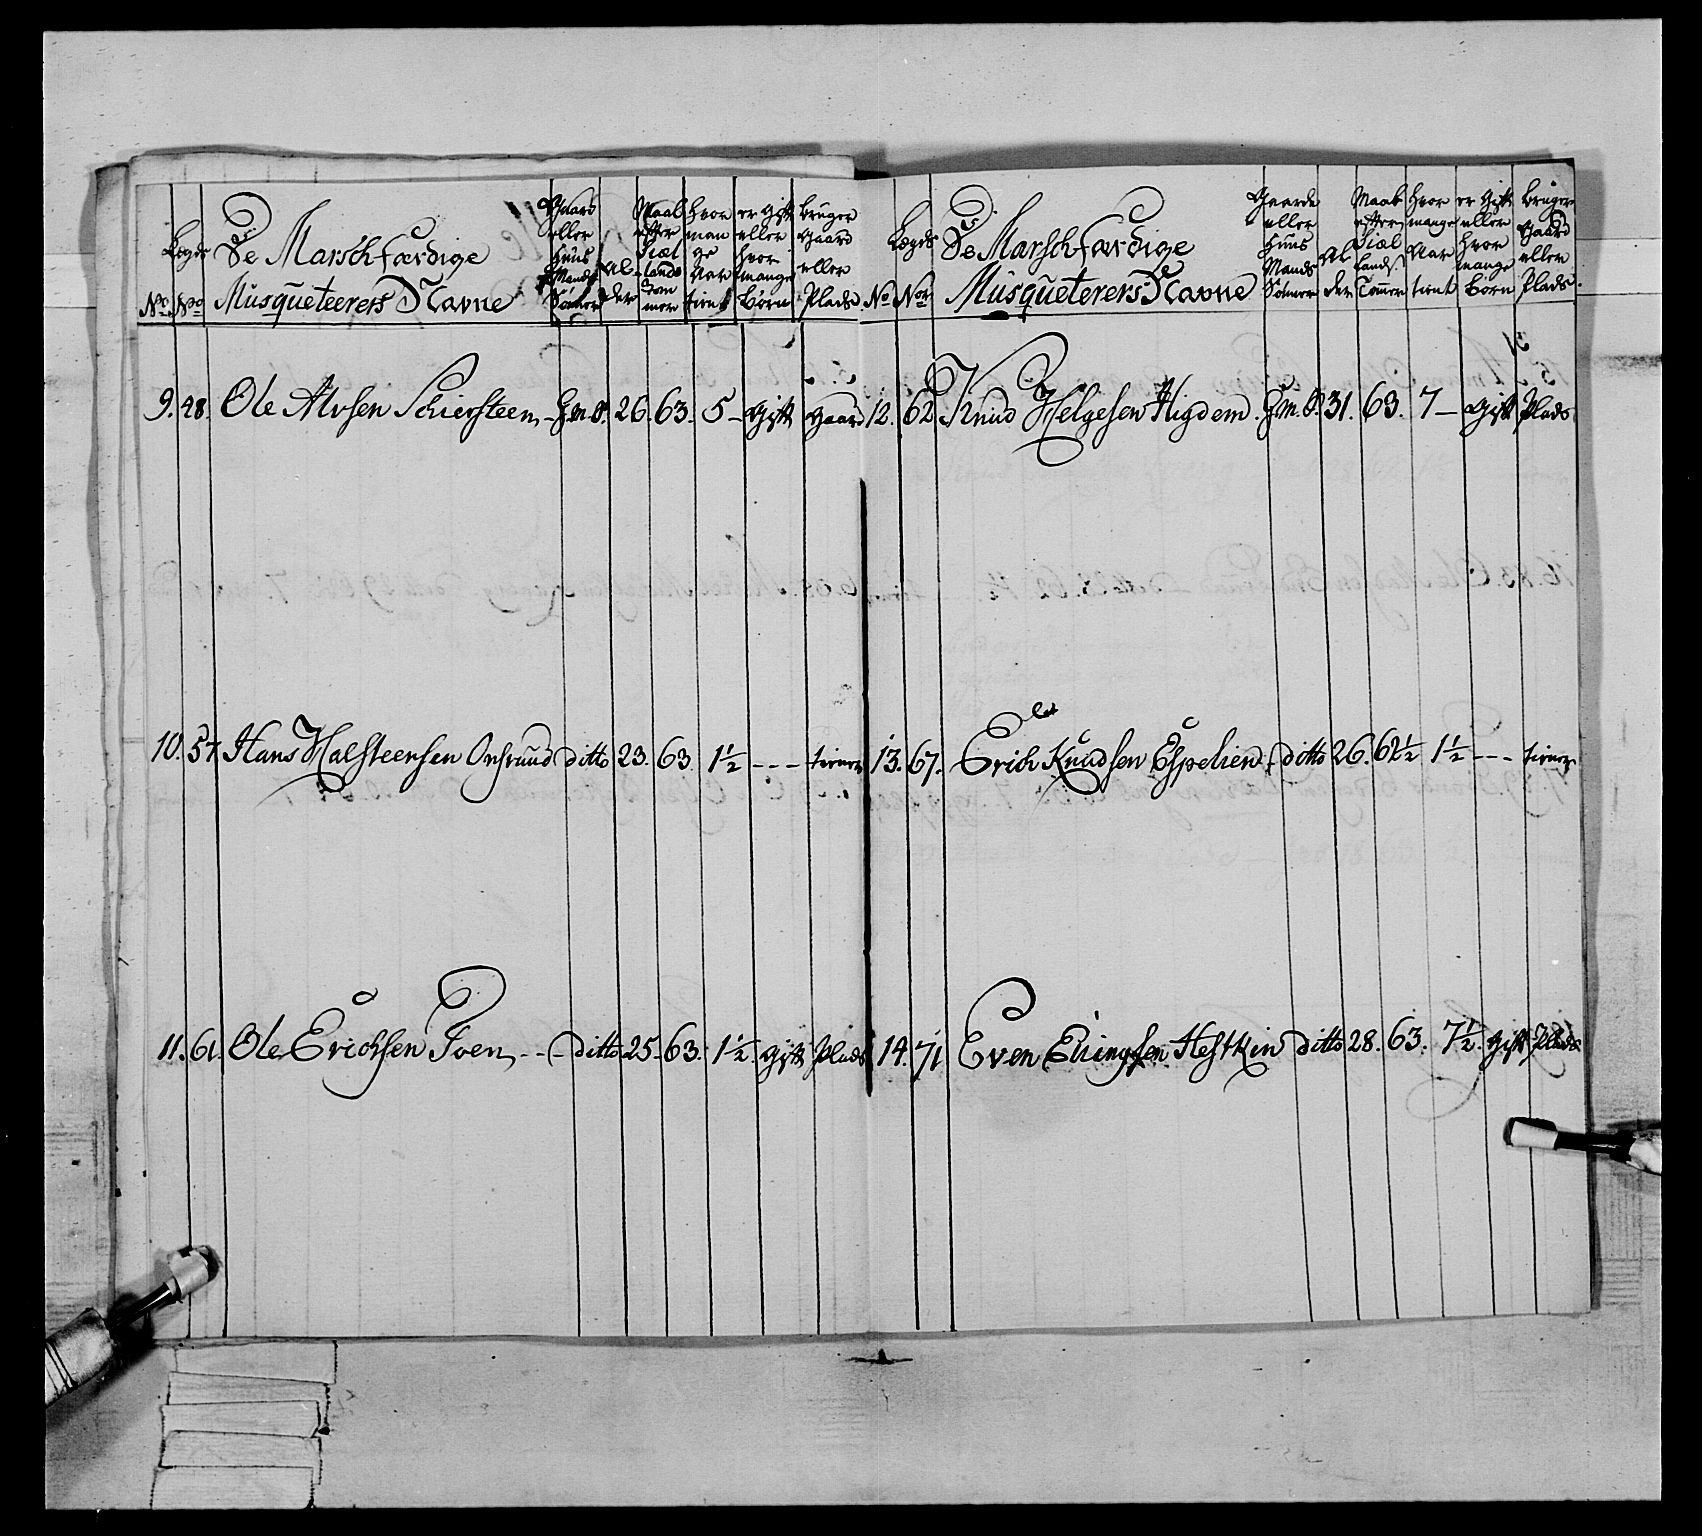 No.
Legds No.
De Marschfærdige
Musqueteerers Navne
Gaard eller Huus Mands Sönner
Alder
Maal efter Siælands Tommer
hvor mange Aar tient
er Gift eller hvor mange Börn
bruger Gaard eller Plads
9. 48. Ole Alvsen Schiersteen G.M.S. 26. 63. 5 Gift Gaard
10. 57. Hans Halsteensen Onsrund ditto 23. 63. 1½ - - - tiener
11. 61. Ole Erichsen Toen - - ditto 25. 63. 1½. Gift Plads
No.
Legds No.
De Marschfærdige
Musqueterers Navne
Gaards eller Huus Mands Sönner
Alder
Maal efter Siælands Tommer
hvor mange Aar tient
er Gift eller hvor mange Börn
bruger Gaard eller Plads.
12. 62 Knud Helgesen Kigdem. G.M.S. 31. 63. 7 Gift Plads
13. 67. Erich Knudsen Espelien ditto 26. 62½ 1½ - - - tiener
14. 71 Even Elingsen Hestkin ditto 28. 63. 7½. Gift Plads